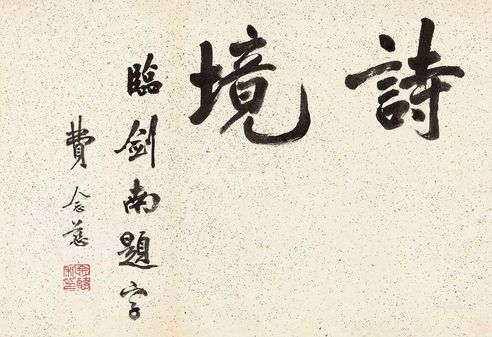 詩境
臨劍南題字
費念慈